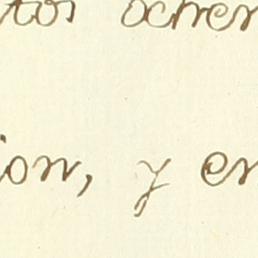 tos ochen
ion, y en